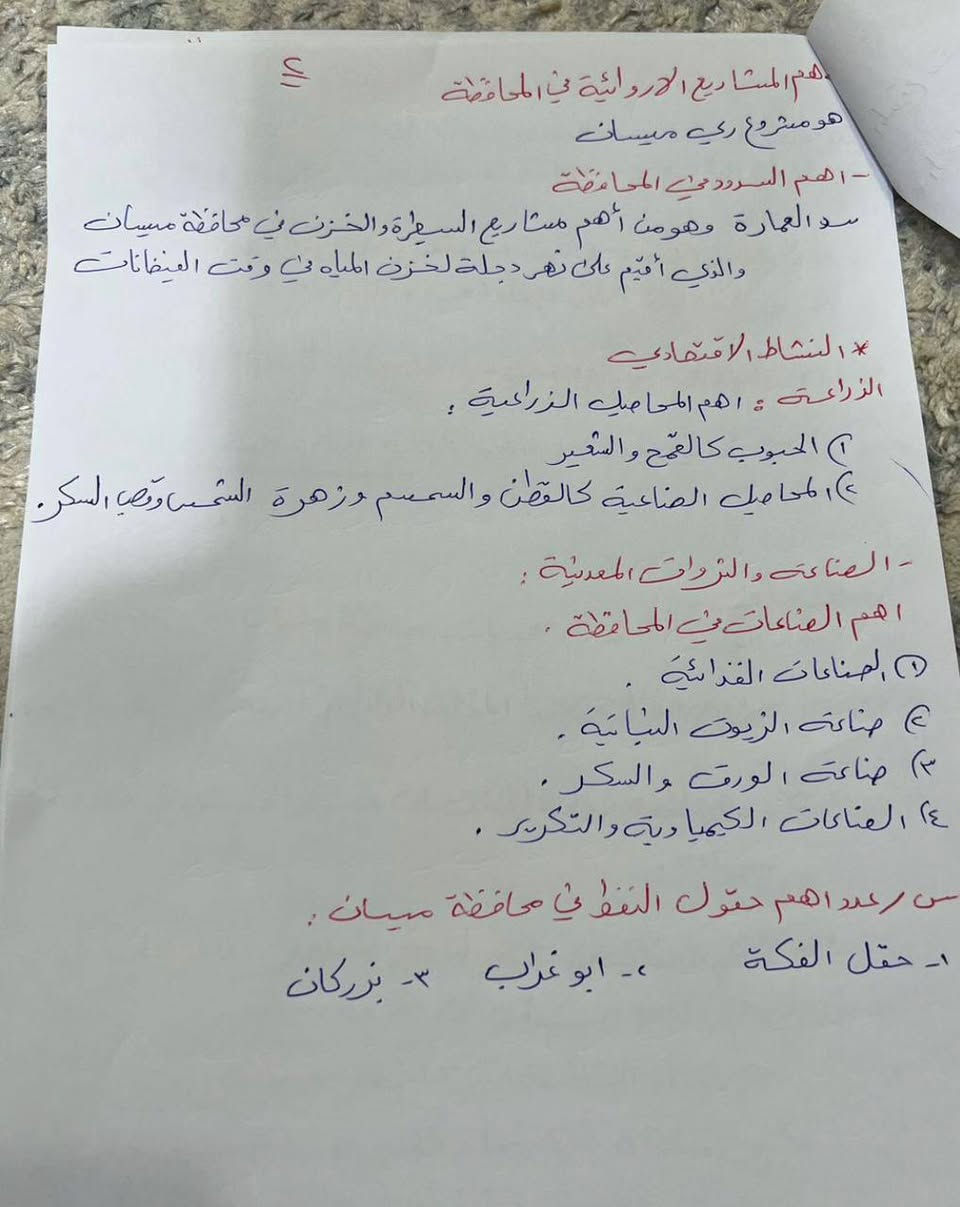 ٢
اهم المشاريع الاروائية في المحافظة
هو مشروع ري ميسان
- اهم السدود في المحافظة
سد العمارة وهو من أهم مشاريع السيطرة والخزن في محافظة ميسان
والذي أقيم على نهر دجلة لخزن المياه في وقت الفيضانات
* النشاط الاقتصادي
الزراعة : اهم المحاصيل الزراعية :
١) الحبوب كالقمح والشعير
٢) المحاصيل الصناعية كالقطن والسمسم وزهرة الشمس وقصب السكر.
- الصناعة والثروات المعدنية :
اهم الصناعات في المحافظة .
١) الصناعات الغذائية .
٢) صناعة الزيوت النباتية .
٣) صناعة الورق والسكر .
٤) الصناعات الكيمياوية والتكرير .
س / عدد اهم حقول النفط في محافظة ميسان :
١- حقل الفكة ٢- ابو غراب ٣- بزركان